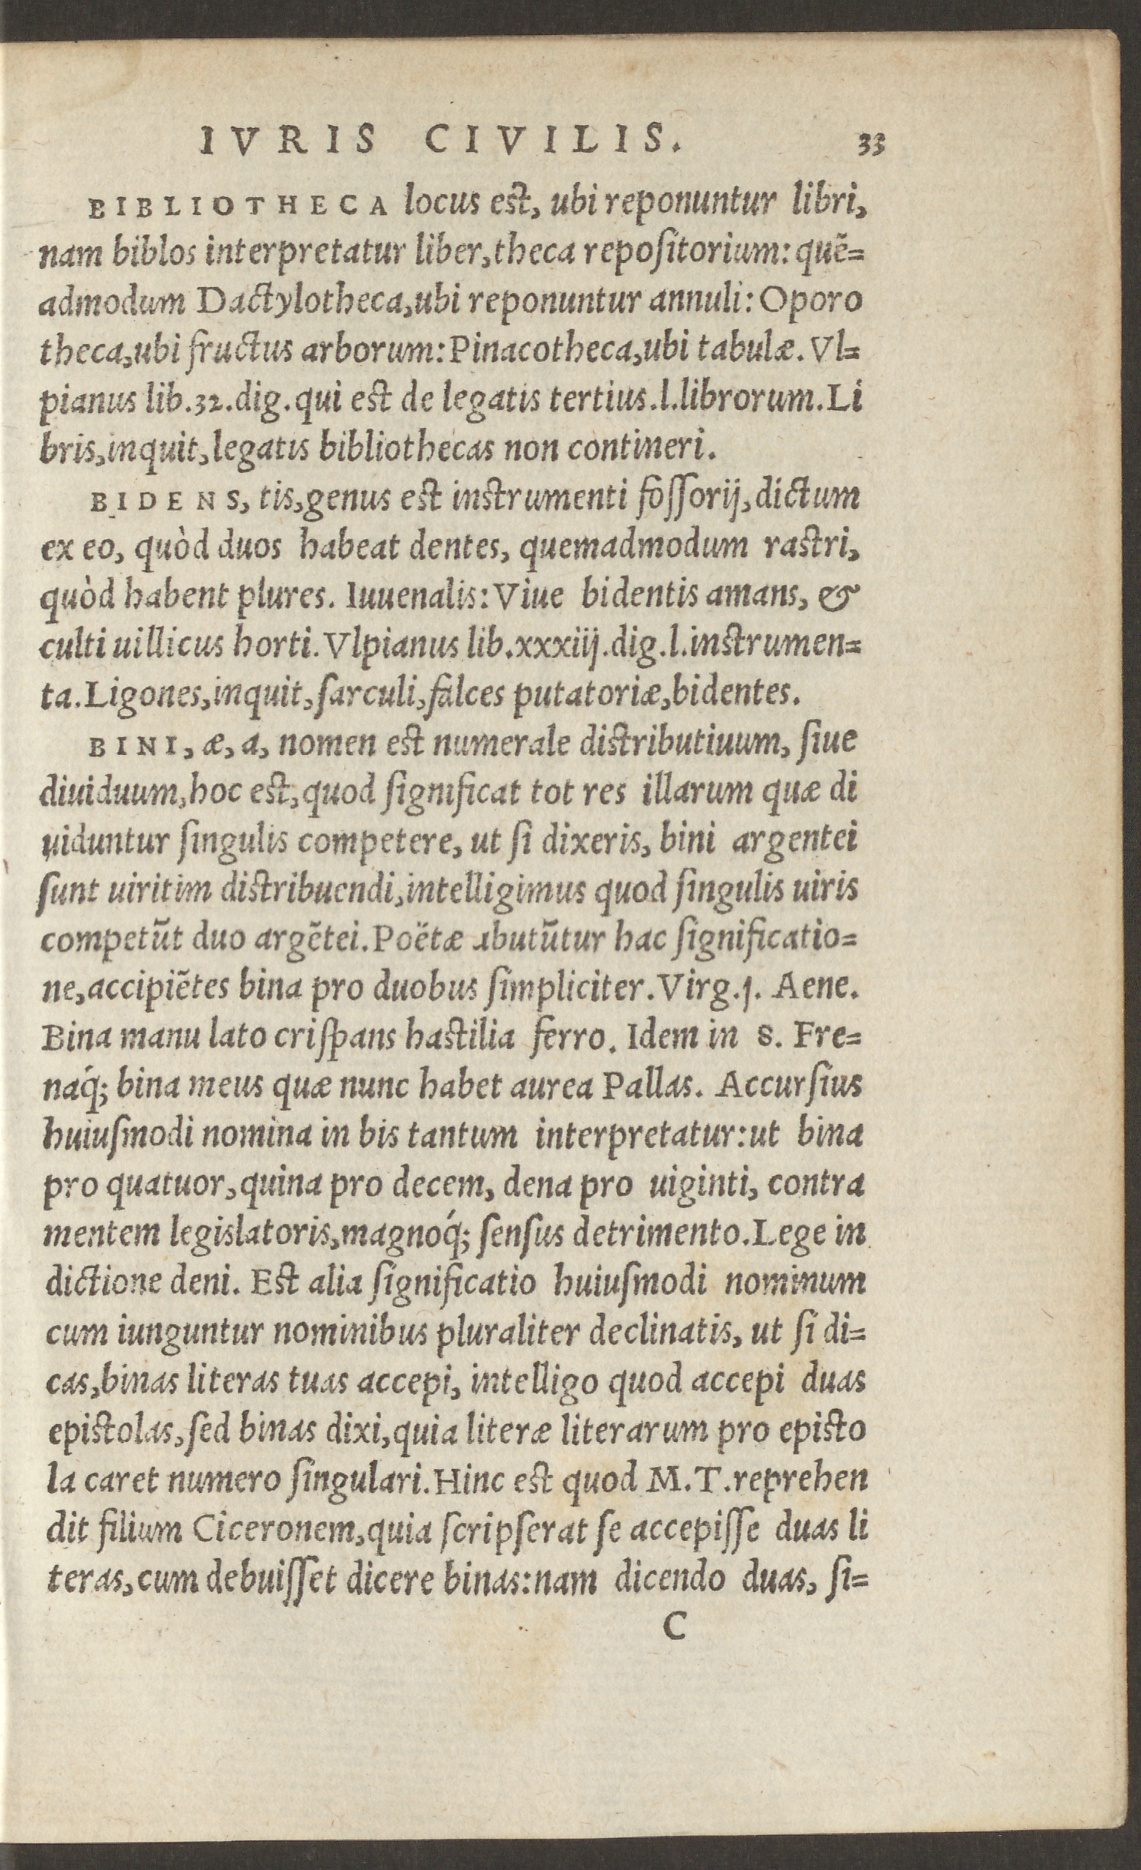 IVRIS CIVILIS. 33
BIBLIOTHECA locus est, ubi reponuntur libri,
nam biblos interpretatur liber, theca repoſitorium: quẽ=
admodum Dactylotheca, ubi reponuntur annuli: Oporo
theca, ubi fructus arborum: Pinacotheca, ubi tabulæ. Vl=
pianus lib.32.dig. qui est de legatis tertius.l.librorum. Li
bris, inquit, legatis bibliothecas non contineri.
BIDENS, tis, genus est instrumenti foſſorij, dictum
ex eo, quòd duos habeat dentes, quemadmodum rastri,
quòd habent plures. Iuuenalis: Viue bidentis amans, &
culti uillicus horti. Vlpianus lib.xxxiij.dig.l.instrumen=
ta. Ligones, inquit, ſarculi, falces putatoriæ, bidentes.
BINI, æ, a, nomen est numerale distributiuum, ſiue
diuiduum, hoc est, quod ſignificat tot res illarum quæ di
uiduntur ſingulis competere, ut ſi dixeris, bini argentei
ſunt uiritim distribuendi, intelligimus quod ſingulis uiris
competũt duo argẽtei. Poëtæ abutũtur hac ſignificatio=
ne, accipiẽtes bina pro duobus ſimpliciter. Virg.j. Aene.
Bina manu lato criſpans hastilia ferro. Idem in 8. Fre=
naq́; bina meus quæ nunc habet aurea Pallas. Accurſius
huiuſmodi nomina in bis tantum interpretatur: ut bina
pro quatuor, quina pro decem, dena pro uiginti, contra
mentem legislatoris, magnoq́; ſenſus detrimento. Lege in
dictione deni. Est alia ſignificatio huiuſmodi nominum
cum iunguntur nominibus pluraliter declinatis, ut ſi di=
cas, binas literas tuas accepi, intelligo quod accepi duas
epistolas, ſed binas dixi, quia literæ literarum pro episto
la caret numero ſingulari. Hinc est quod M.T. reprehen
dit filium Ciceronem, quia ſcripſerat ſe accepiſſe duas li
teras, cum debuiſſet dicere binas: nam dicendo duas, ſi=
C